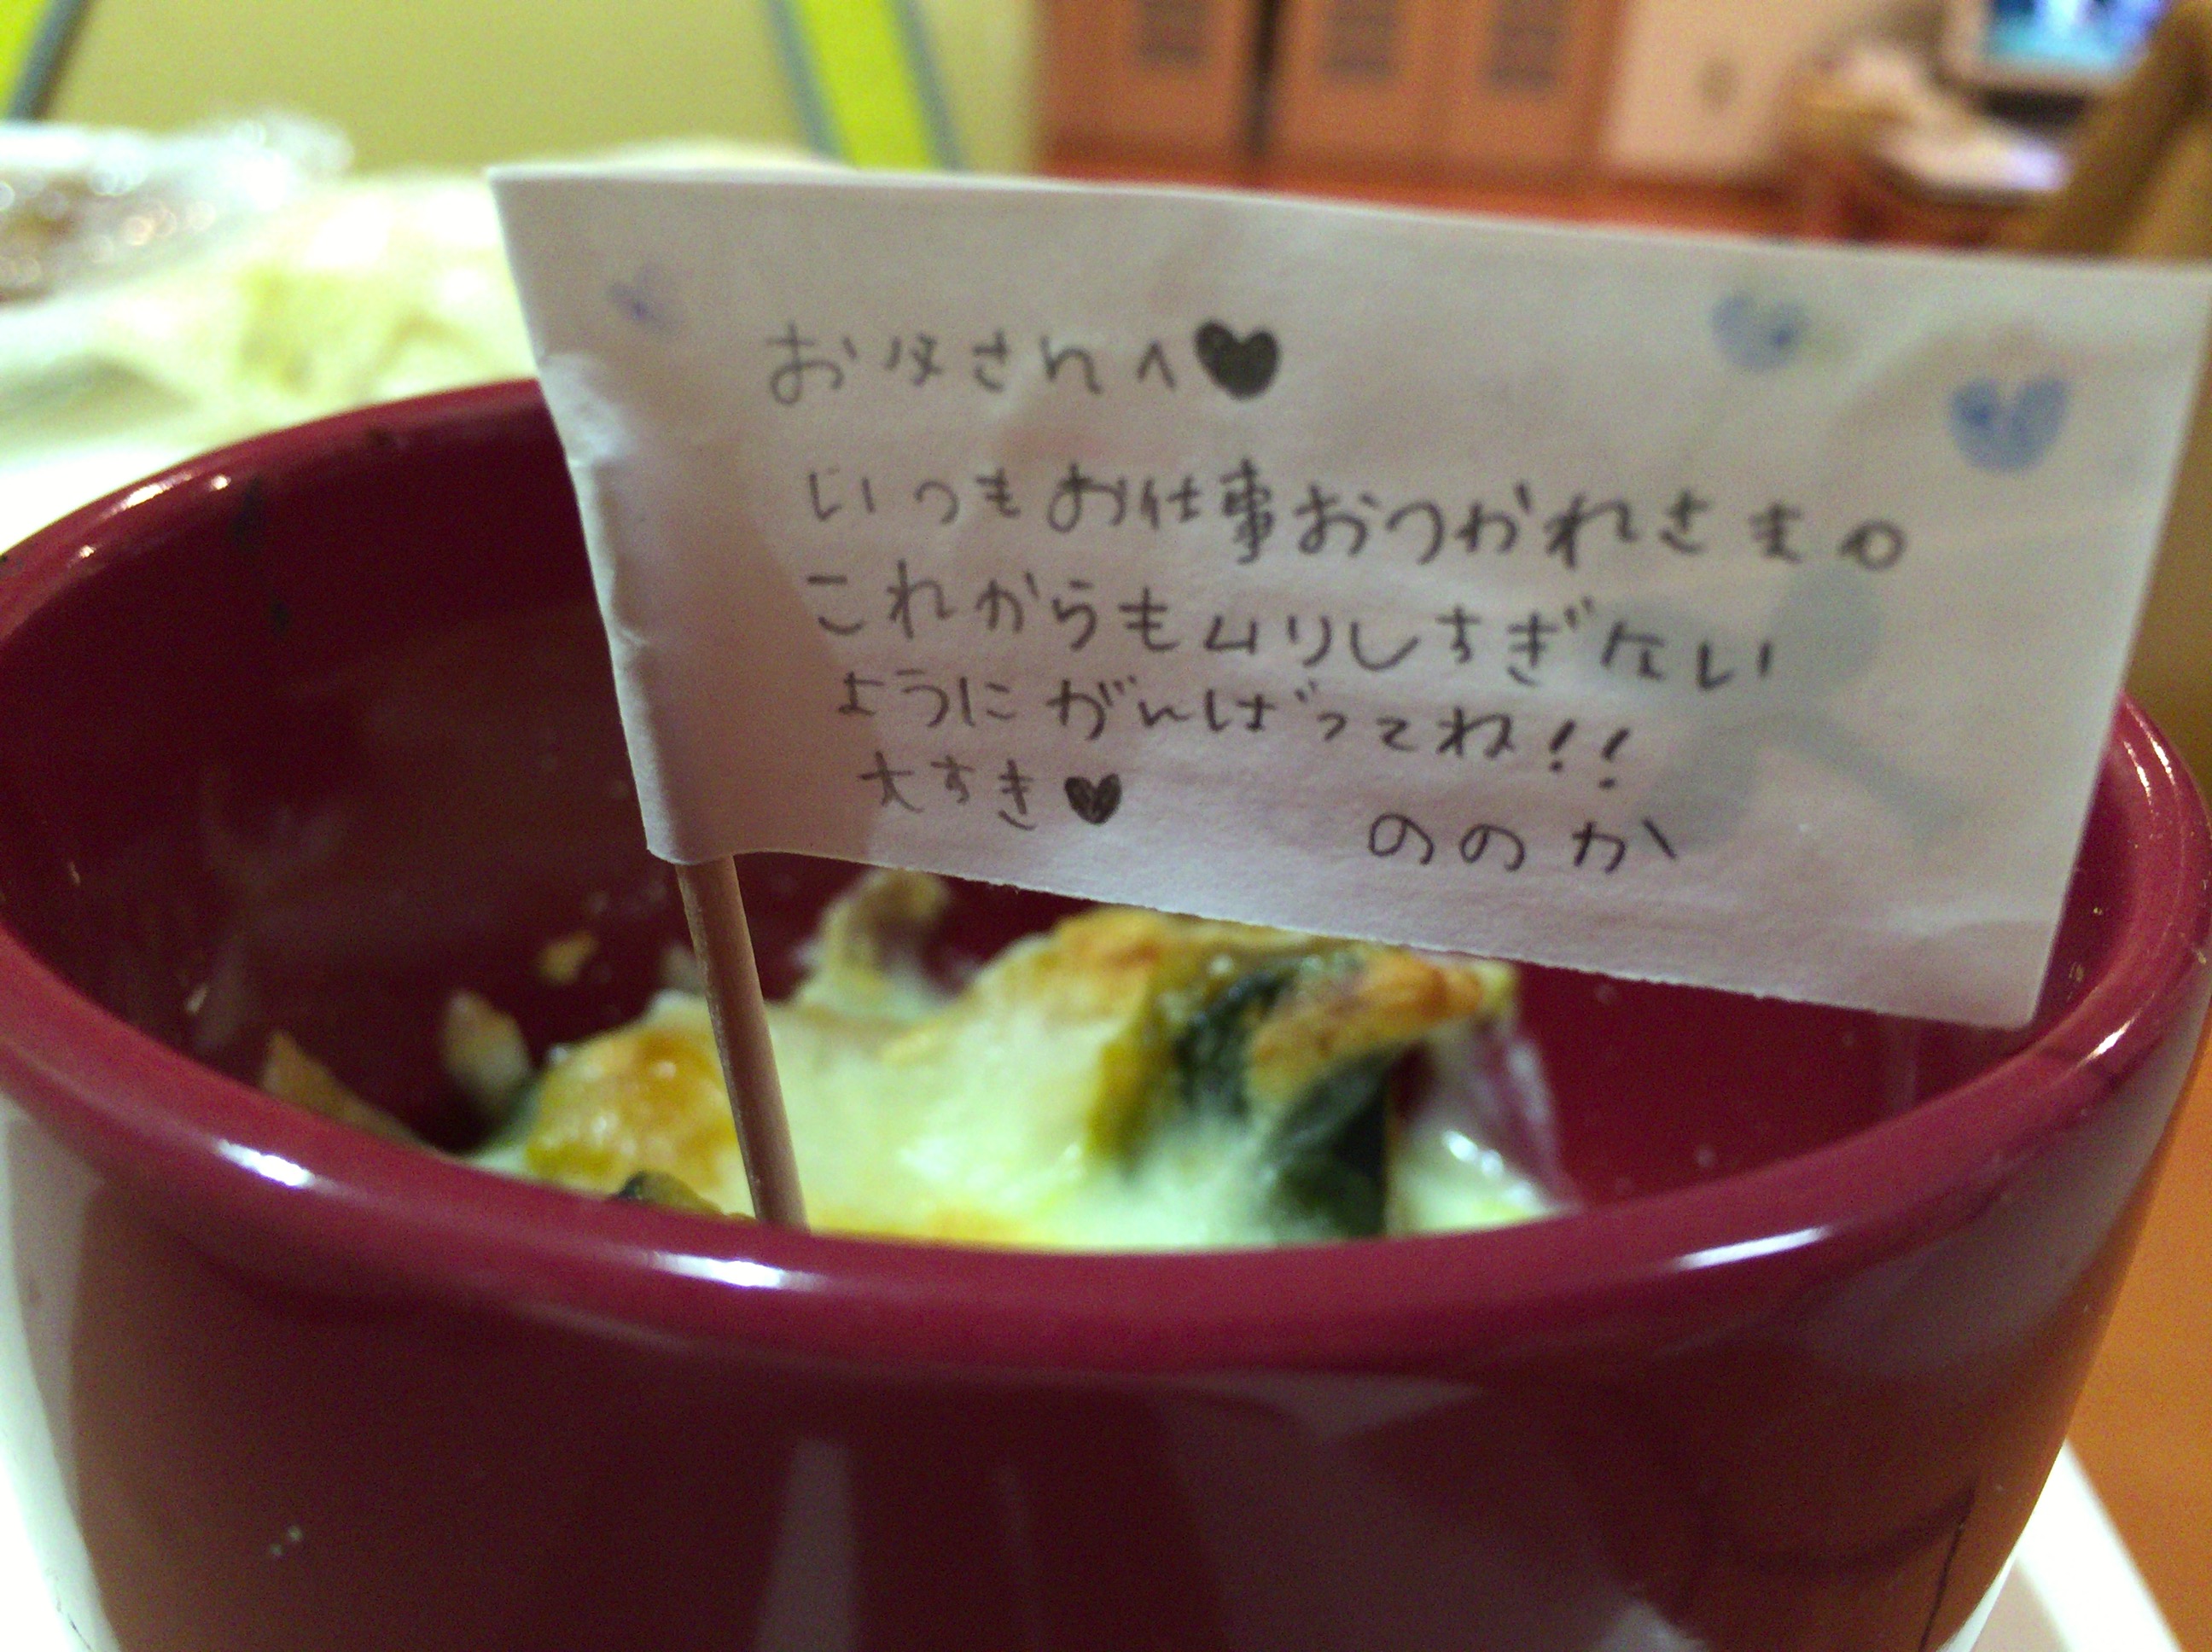 お父さんへ♥
いつもお仕事おつかれさま。
これからもムリしすぎない
ようにがんばってね!!
大すき♥
ののか